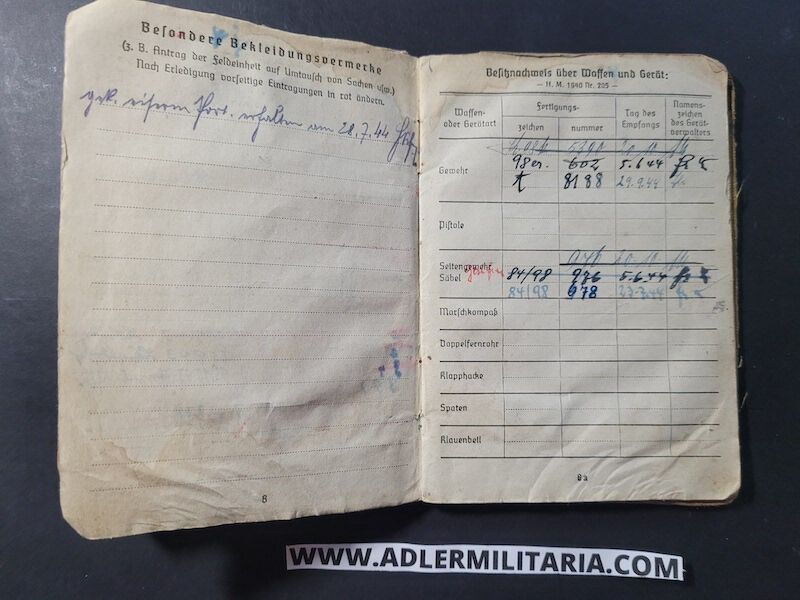 Besondere Bekleidungsvermerke
(z. B. Antrag der Feldeinheit auf Umtausch von Sachen usw.)
Nach Erledigung vorseitige Eintragungen in rot ändern.
eiserne Port. erhalten am 28.7.44
8
Besitznachweis über Waffen und Gerät:
— H. M. 1940 Nr. 205 —
Waffen- oder Gerätart
Fertigungs-
zeichen
nummer
Tag des Empfangs
Namens-zeichen des Gerät-verwalters
Gewehr
98er. 602 5.6.44
8188 29.9.44
Pistole
Seitengewehr
Säbel 84/98 976 5.6.44
84/98 978
Marschkompaß
Doppelfernrohr
Klapphacke
Spaten
Klauenbeil
8a
WWW.ADLERMILITARIA.COM